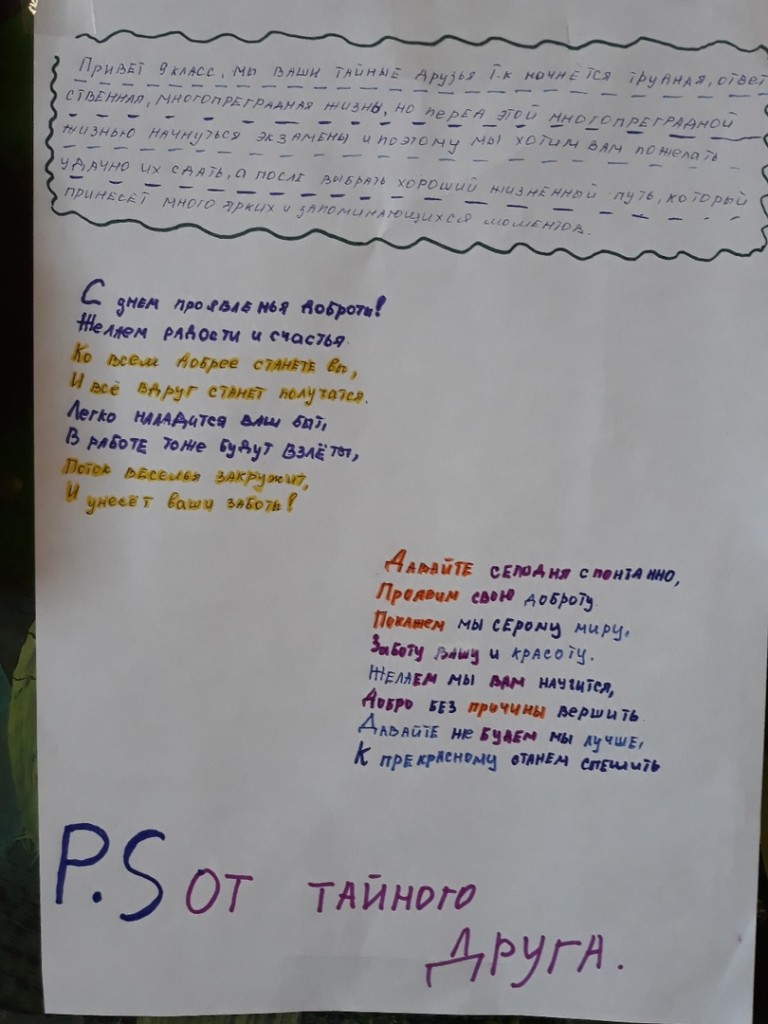 Привет 9 класс, мы ваши тайные друзья т.к начнётся трудная, ответ
ственная, многопреградная жизны, но перед этой многопреградной
жизнью начнуться экзамены и поэтому мы хотим вам пожелать
удачно их сдать, а после выбрать хороший жизненный путь, который
принесёт много ярких и запоминающихся моментов.
С днем проявленья доброты!
Желаем радости и счастья.
Ко всем добрее станете вы,
И всё вдруг станет получатся.
Легко наладится ваш быт,
В работе тоже будут взлёты,
Поток веселья закружит,
И унесёт ваши заботы!
Давайте сегодня спонтанно,
Проявим свою доброту.
Покажем мы серому миру,
Заботу вашу и красоту.
Желаем мы вам научится,
Добро без причины вершить.
Давайте же будем мы лучше,
К прекрасному станем спешить
P.S от тайного
друга.